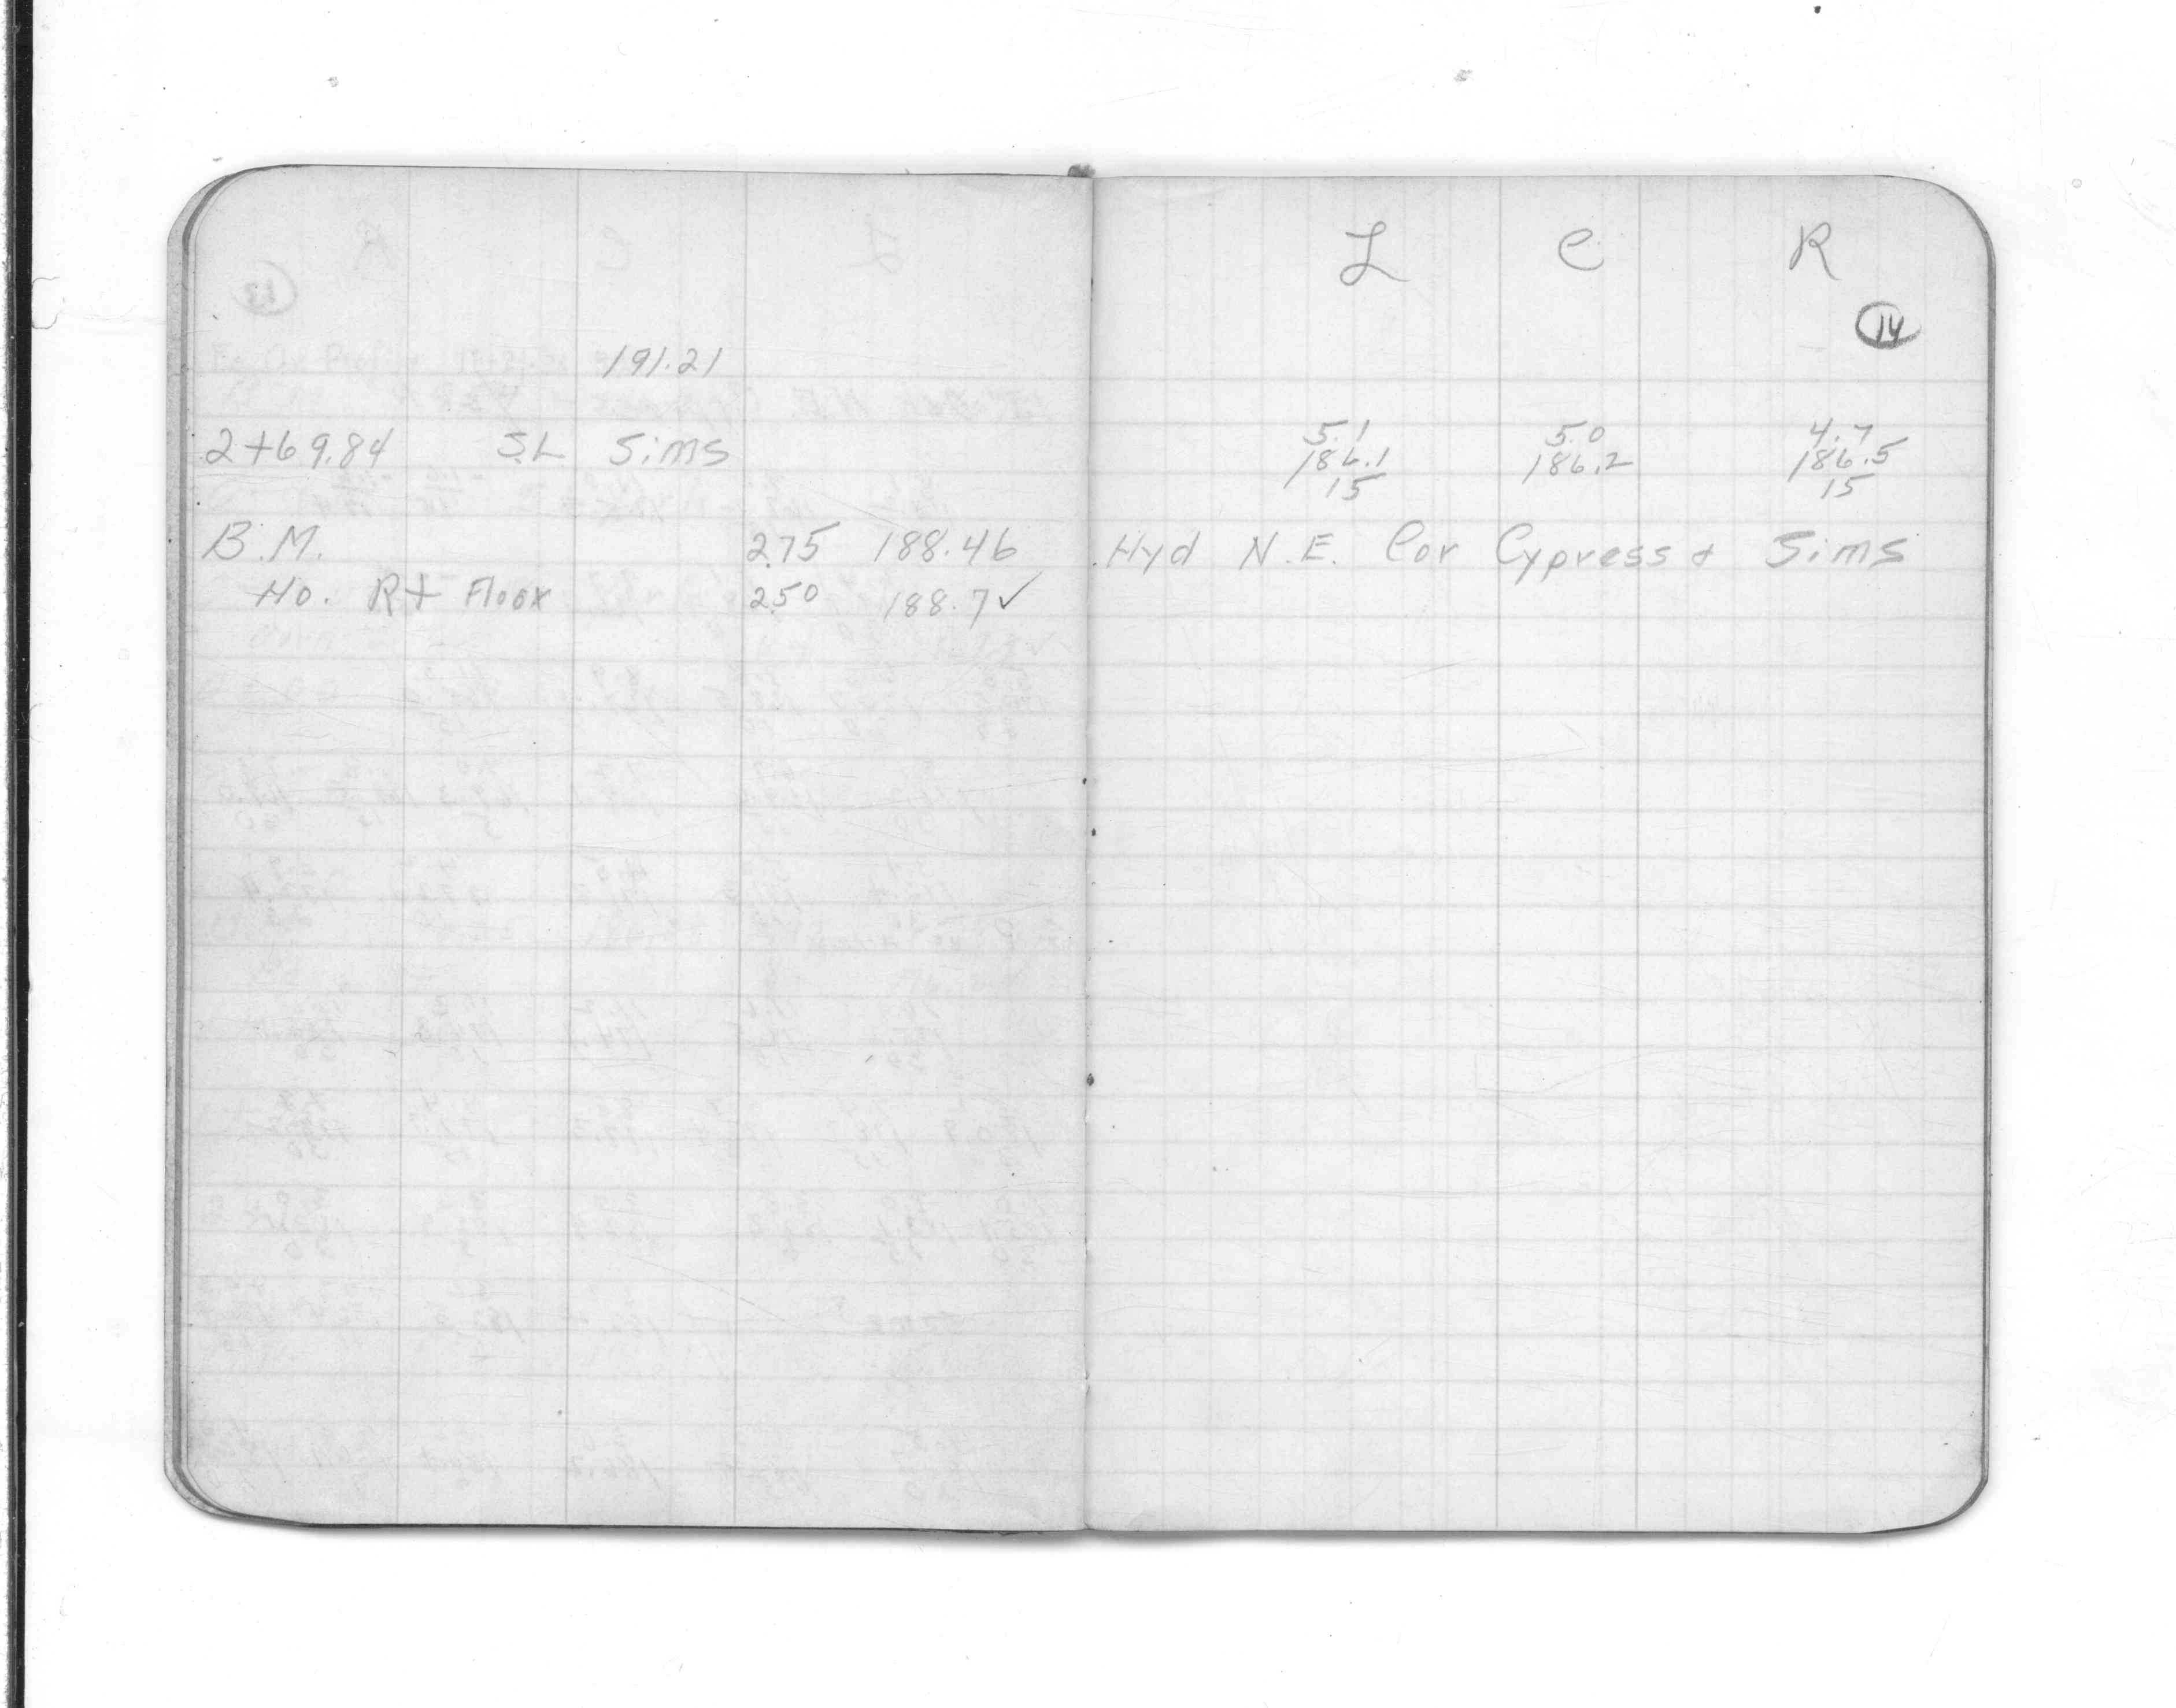 L C R
14
191.21
2+69.84 S.L Sims 5.1 5.0 4.7
186.1 186.2 186.5
15 15
B.M. 2.75 188.46 Hyd N.E. Cor Cypress & Sims
Ho. Rt Floor 2.50 188.7✓